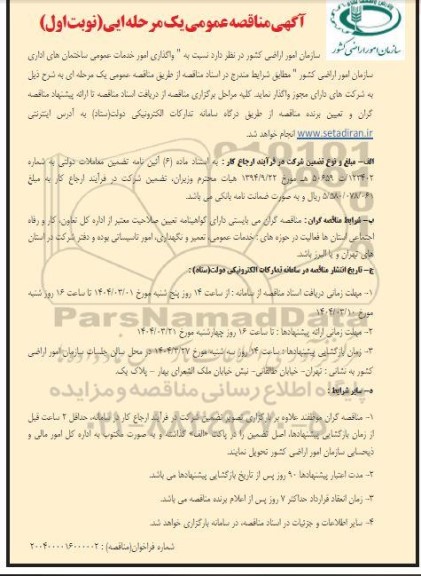 آگهی مناقصه عمومی یک مرحله ایی (نوبت اول)
سازمان امور اراضی کشور
سازمان امور اراضی کشور در نظر دارد نسبت به " واگذاری امور خدمات عمومی ساختمان های اداری
سازمان امور اراضی کشور " مطابق شرایط مندرج در اسناد مناقصه از طریق مناقصه عمومی یک مرحله ای به شرح ذیل
به شرکت های دارای مجوز واگذار نماید. کلیه مراحل برگزاری مناقصه از دریافت اسناد مناقصه تا ارائه پیشنهاد مناقصه
گران و تعیین برنده مناقصه از طریق درگاه سامانه تدارکات الکترونیکی دولت(ستاد) به آدرس اینترنتی
www.setadiran.ir انجام خواهد شد.
الف- مبلغ و نوع تضمین شرکت در فرآیند ارجاع کار : به استناد ماده (۶) آئین نامه تضمین معاملات دولتی به شماره
۱۲۳۴۰۲/ت ۵۰۶۵۹ هـ مورخ ۱۳۹۴/۹/۲۲ هیات محترم وزیران، تضمین شرکت در فرآیند ارجاع کار به مبلغ
۵/۵۸۰/۰۷۸/۰۶۱ ریال و به صورت ضمانت نامه بانکی می باشد.
ب- شرایط مناقصه گران : مناقصه گران می بایستی دارای گواهینامه تعیین صلاحیت معتبر از اداره کل تعاون، کار و رفاه
اجتماعی استان ها فعالیت در حوزه های : خدمات عمومی، تعمیر و نگهداری، امور تاسیساتی بوده و دفتر شرکت در استان
های تهران و یا البرز باشد.
ج- تاریخ انتشار مناقصه در سامانه تدارکات الکترونیکی دولت(ستاد) :
۱- مهلت زمانی دریافت اسناد مناقصه از سامانه : از ساعت ۱۴ روز پنج شنبه مورخ ۱۴۰۴/۰۳/۰۱ تا ساعت ۱۶ روز شنبه
مورخ ۱۴۰۴/۰۳/۱۰
۲- مهلت زمانی ارائه پیشنهادها : تا ساعت ۱۶ روز چهارشنبه مورخ ۱۴۰۴/۰۳/۲۱
۳- زمان بازگشایی پیشنهادها : ساعت ۱۴ روز سه شنبه مورخ ۱۴۰۴/۳/۲۷ در محل سالن جلسات سازمان امور اراضی
کشور به نشانی : تهران- خیابان طالقانی- نبش خیابان ملک الشعرای بهار – پلاک یک.
ه- سایر شرایط :
۱- مناقصه گران موظفند علاوه بر بارگزاری تصویر تضمین شرکت در فرآیند ارجاع کار در سامانه، حداقل ۲ ساعت قبل
از زمان بازگشایی پیشنهادها، اصل تضمین را در پاکت «الف» گذاشته و به صورت مکتوب به اداره کل امور مالی و
ذیحسابی سازمان امور اراضی کشور تحویل نمایند.
۲- مدت اعتبار پیشنهادها ۹۰ روز پس از تاریخ بازگشایی پیشنهادها می باشد.
۳- زمان انعقاد قرارداد حداکثر ۷ روز پس از اعلام برنده مناقصه می باشد.
۴- سایر اطلاعات و جزئیات در اسناد مناقصه، در سامانه بارگزاری خواهد شد.
شماره فراخوان(مناقصه) : ۲۰۰۴۰۰۰۰۱۶۰۰۰۰۰۲
ParsNamadData
پایگاه اطلاع رسانی مناقصه و مزایده